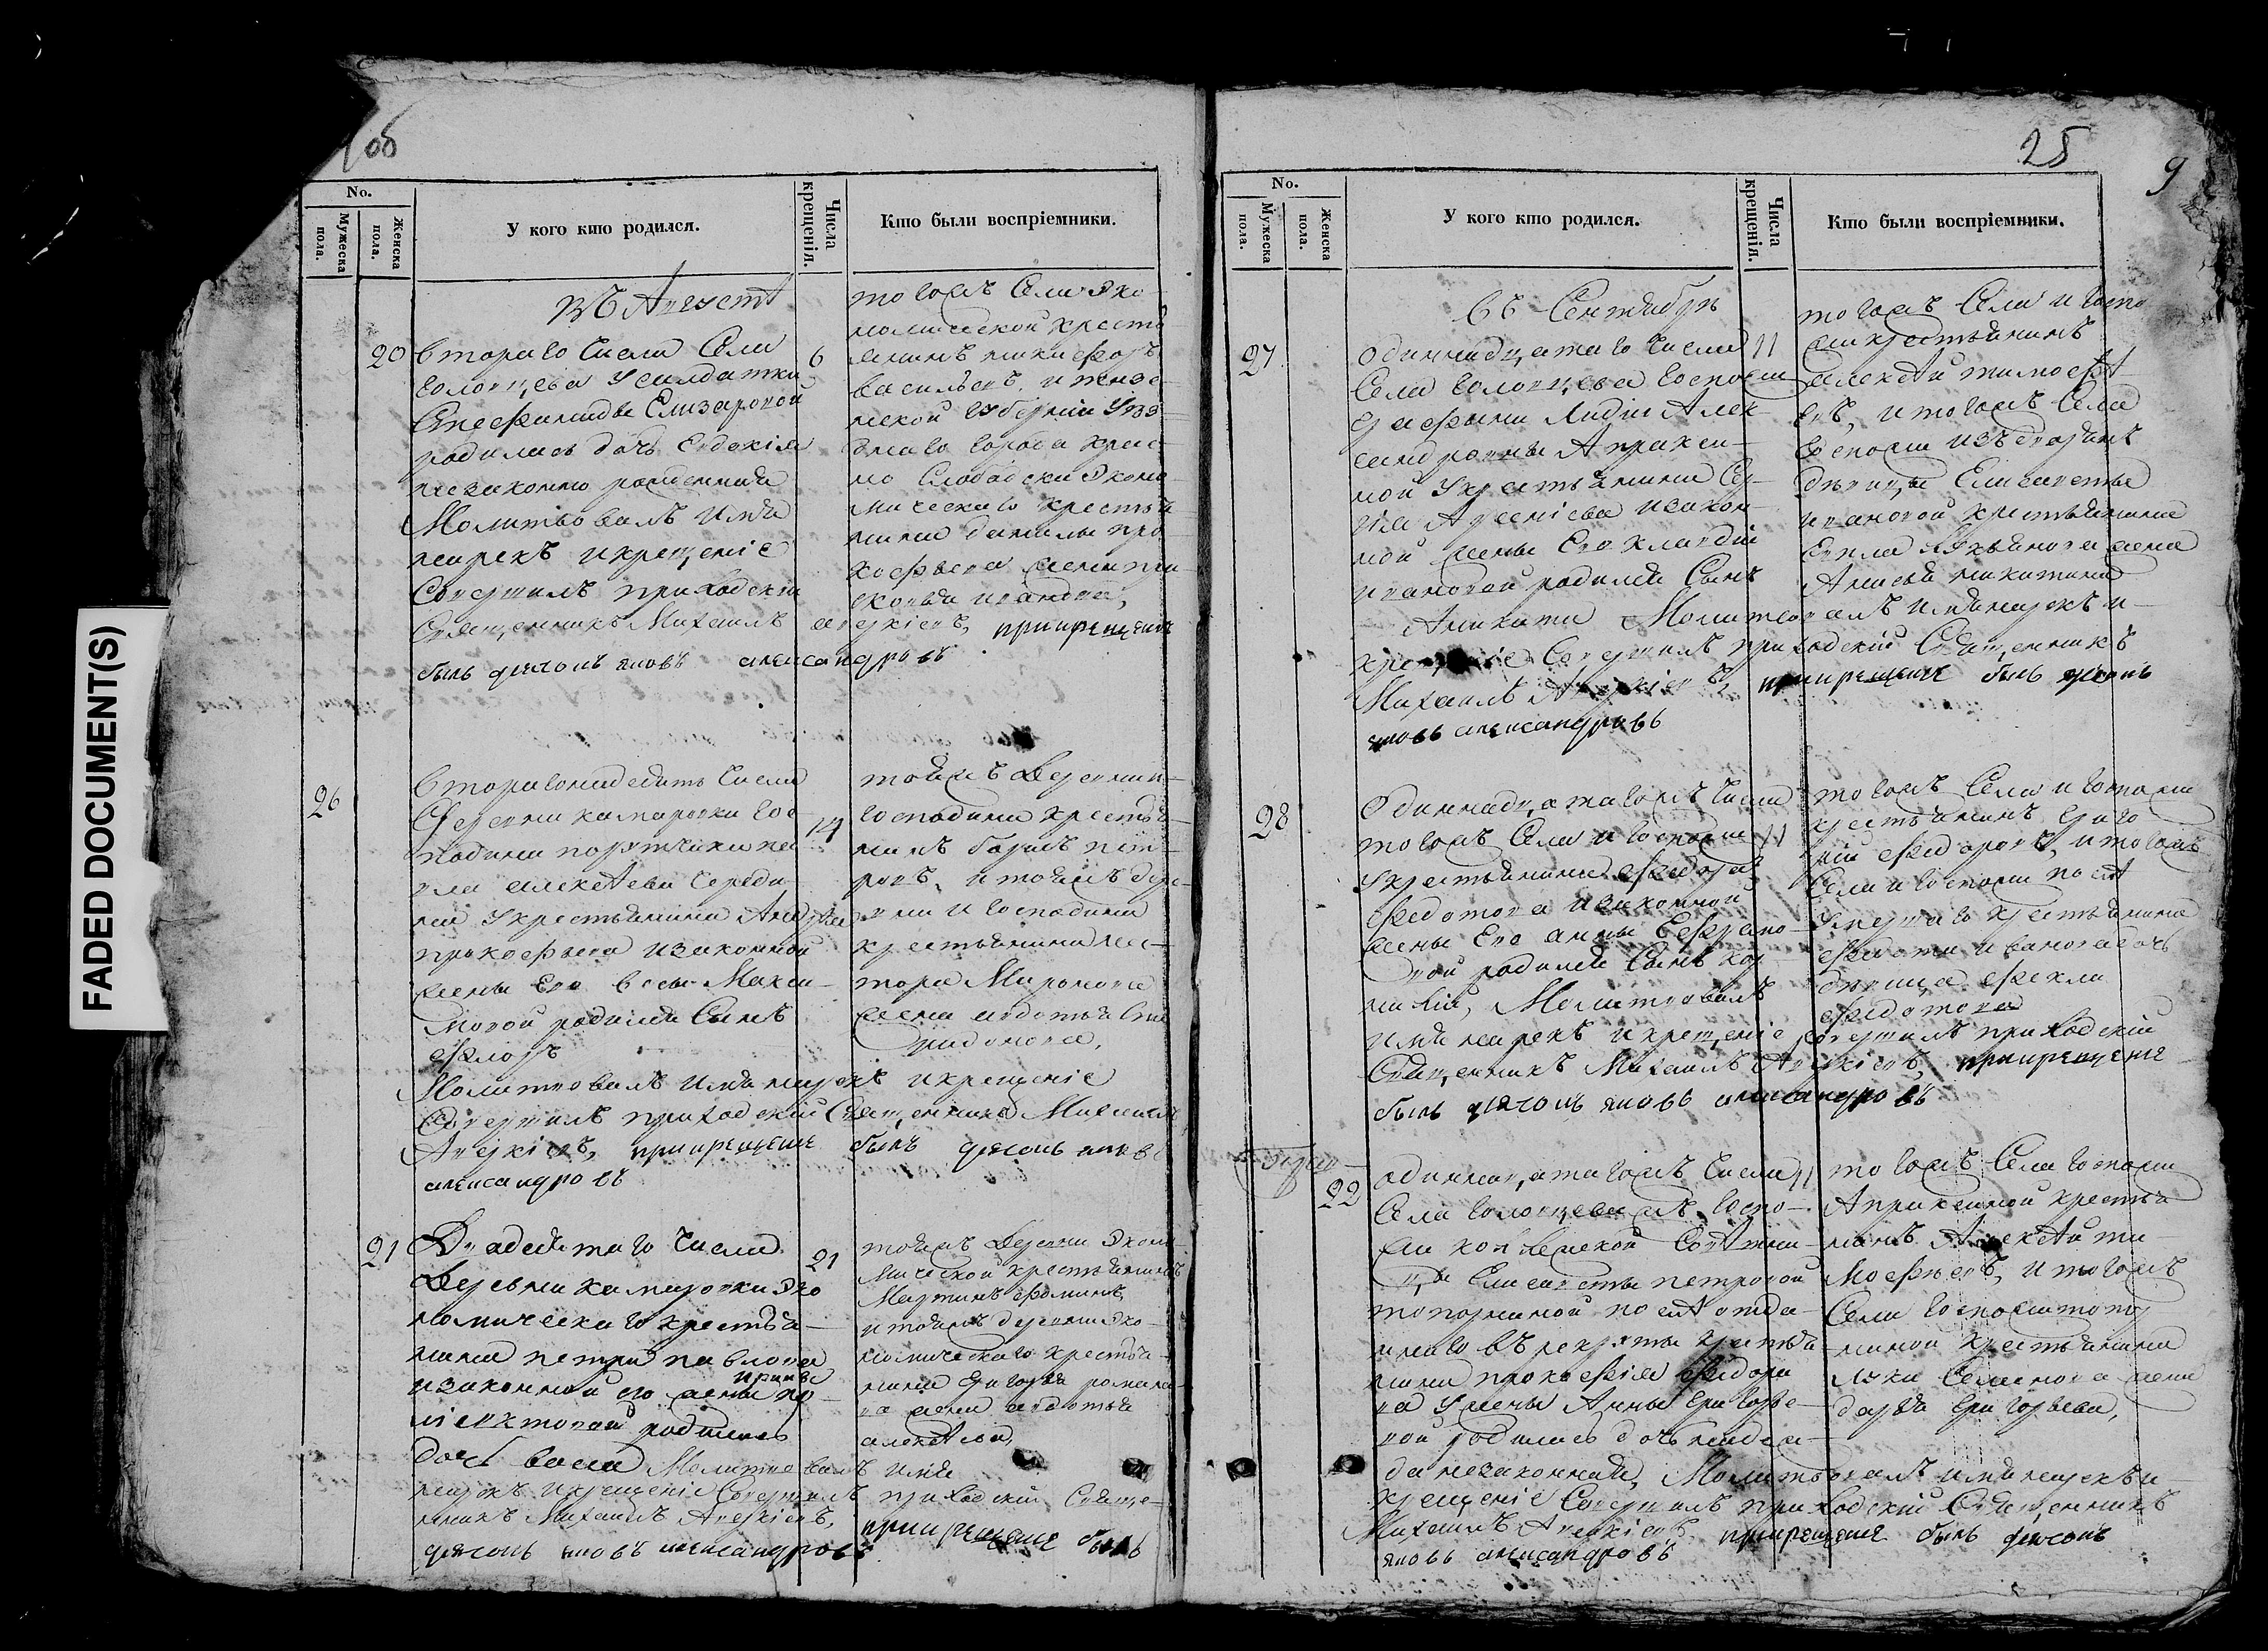 FADED DOCUMENT(S)
об
No.
Мужеска пола.
Женска пола.
У кого кто родился.
Числа крещенія.
Кто были воспріемники.
въ Август
20
втораго числа села
Голопцева у салдатки
Елизаровой
родилась дочь Евдокія
незаконно рожденная
Молитвовалъ имя
нарекъ и крещеніе
совершилъ приходскій
священникъ Михаилъ Аверкіевъ, при крещеніе
былъ дячокъ яковъ александровъ
6
тогожъ села эко
номической кресть
янинъ никифоръ
васильевъ, и пензе
нской губерніи
города крас
но Слободска эконо
мическаго крестья
нина данилы про
кофьева жена
иванова,
26
втораго надесять числа
Деревни камаровки гос
подина порутчика па
вла алекѣева
у крестьянина Андрея
прокофьева и законной
жены его Макси
мовой родился сынъ
флоръ
Молитвовалъ имя нарекъ и крещеніе
совершилъ приходскій священникъ Михаилъ
Аверкіевъ, при крещеніе былъ дячокъ яковъ
александровъ
14
тойжъ Деревни
господина крестья
нинъ борисъ пет
ровъ, и тойжъ дер
вни и господина
крестьянина нес
тора Миронова
жена авдотья Спи
ридонова,
21
Двадесятаго числа
Деревни камаровки эко
номическаго крестья
нина петра павлова
и законной его жены
родилась
дочь Молитвовалъ имя
нарекъ и крещеніе совершилъ приходскій священ
никъ Михаилъ Аверкіевъ, при крещеніе былъ
дячокъ яковъ александровъ
21
тойжъ Деревни эконо
мической крестьянинъ
Мартинъ фоминъ
и тойжъ деревни эко
номическаго крестья
нина Григорья романо
ва жена авдотья
алекѣева,
25
9
No.
Мужеска пола.
Женска пола.
У кого кто родился.
Числа крещенія.
Кто были воспріемники.
въ Сентябрѣ
27
одиннадцатаго числа
села Голопцева госпожи
графини Лидіи Алек
сандровны Апракси
ной у крестьянина Сер
гея Арсеніева и закон
ной жены его клавдіи
ивановой родился сынъ
Аникита Молитвовалъ имя нарекъ и
крещеніе совершилъ приходскій священникъ
Михаилъ Аверкіевъ, при крещеніе былъ дячокъ
яковъ александровъ
11
тогожъ села и госпо
жи крестьянинъ
алекѣй тимофѣ
евъ, и тогожъ села
госпожи изъ дворянъ
дѣвицы Елисаветы
ивановой крестьянина
жена
Анисья никитина
28
Одиннадцатагожъ числа
тогожъ села и госпожи
у крестьянина федора
федотова и законной
жены его анны
родился сынъ кор
нилій, Молитвовалъ
имя нарекъ и крещеніе совершилъ приходскій
священникъ Михаилъ Аверкіевъ, при крещеніе
былъ дячокъ яковъ александровъ
11
тогожъ села и госпожи
крестьянинъ григо
рій федоровъ, и тогожъ
села и госпожи послѣ
умершаго крестьянина
федота иванова дочь
девица фекла
федотова
22
одиннадцатагожъ числа
села Голопцеважъ госпо
жи
Елисаветы петровой
топорниной послѣ отда
ннаго въ рекруты крестья
нина прокофія федоро
ва у жены Анны Григорье
вой родилась дочь надеж
да незаконная, Молитвовалъ имя нарекъ и
крещеніе совершилъ приходскій священникъ
Михаилъ Аверкіевъ, при крещеніе былъ дячокъ
яковъ александровъ
11
тогожъ села госпожи
Апраксиной крестья
нинъ Алекѣй ти
мофѣевъ, и тогожъ
села госпожи топор
ниной крестьянина
луки семенова жена
дарья григорьева,